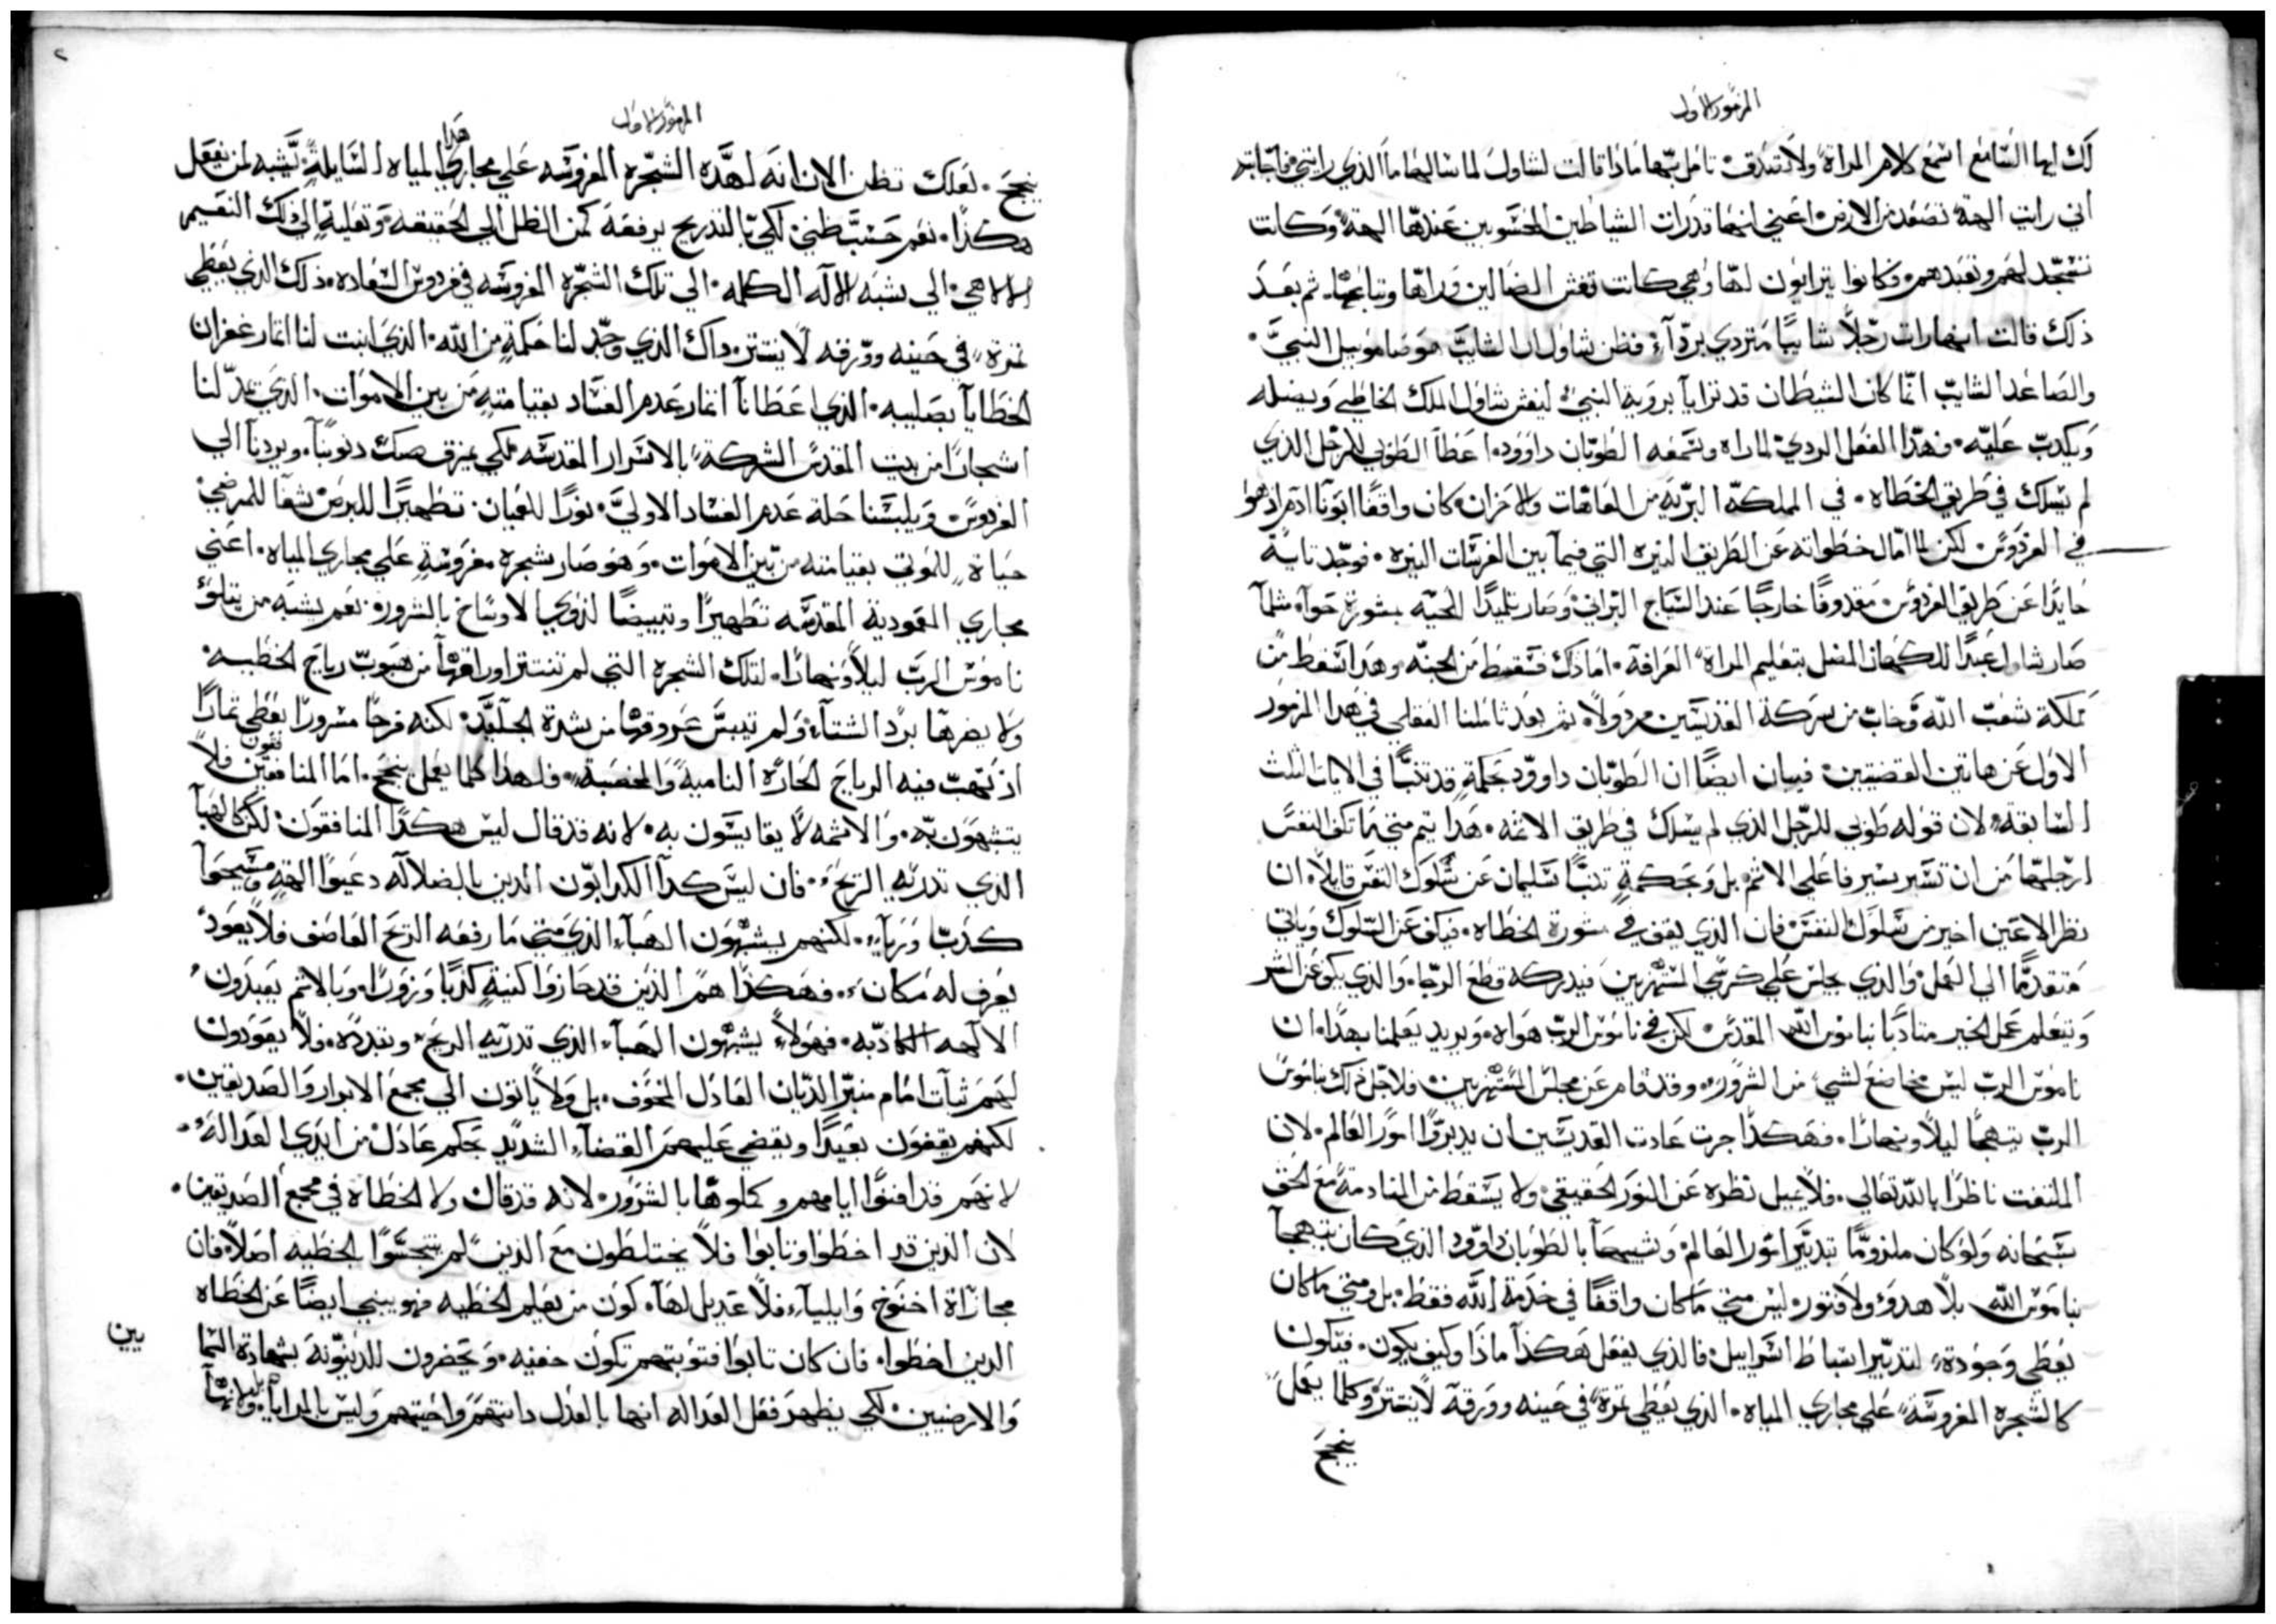 المزمور الاول
لك ايها السامع اسمع كلام المراة ولا تصدق تامل بتها ماذا قالت لشاول لما سالها ما الذي رايتي فاجابته
اني رايت الهة تصعد من الارض اعني انها قدرات الشياطين المحسوبين عندها الهة وكانت
تسجد لهم وتعبدهم وكانوا يترايون لها وهي كانت تغش الضالين وراها وتباعها ثم بعد
ذلك قالت انها رات رجلاً شايبًا متردي برداء فظن شاول ان الشايب هو صاموييل النبي
والصاعد الشايب انما كان الشيطان قد ترايا بروية النبي ليغش شاول الملك الخاطي ويضله
ويكدب عليه فهذا الفعل الردي لما راه وسمعه الطوبان داوود اعطا الطوبى للرجل الذي
لم يسلك في طريق الخطاه في المملكة البرية من العاهات والاحزان كان واقفًا ابونا ادم اذ هو
في الفردوس لكن لما امال خطواته عن الطريق النيره التي فيما بين الغرسات النيره فوجد تايهًا
حايدًا عن طريق الفردوس مقدوفًا خارجًا عند السياج البراني وصار تلميدًا للحيه بمشورة حوا مثلما
صار شاول عبدًا للكهان المضل بتعليم المراة العرافة اما ذاك فسقط من الجنه وهذا سقط من
مملكة شعب الله وخاب من شركة القديسين مردولا ثم بعد تاملنا العقلي في هذا المزمور
الاول عن هاتين القضيتين فيبان ايضًا ان الطوبان داوود بحكمة قد تنبا في الايات الثلث
السابقة لان قوله طوبى للرجل الذي لم يسلك في طريق الاثمه هذا يتم متى ما تكف النفس
ارجلها من ان تسير بسير فاعلي الاثم بل وبحكمة تنبا سليمان عن سلوك النفس قايلا ان
نظر الاعين اخير من سلوك النفس فان الذي يقف في مشورة الخطاه فيكف عن السلوك وياتي
متقدمًا الى العمل والذي يجلس على كرسي المستهزين فيدركه قطع الرجاء والذي يكف عن الشر
ويتعلم عمل الخير متادبًا بناموس الله المقدس لكن في ناموس الرب هواه ويريد يعلمنا بهذا ان
ناموس الرب ليس مخاضع لشي من الشرور وقد قام عن مجلس المستهزين فلاجل ذلك بناموس
الرب يتهجا ليلاً ونهارًا فهكذا جرت عادت القديسين ان يدبروا امور العالم لان
الملتفت ناظرًا بالله تعالى فلا يميل نظره عن النور الحقيقي ولا يسقط من المنادمة مع الحق
سبحانه ولو كان ملزومًا بتدبير امور العالم وشبيهًا بالطوبان داوود الذي كان يتهجا
بناموس الله بلا هدو ولا فتور ليس متى ما كان واقفًا في خدمة الله فقط بل ومتى ما كان
يعطي وجوده لتدبير اسباط اسراييل فالذي يفعل هكذا ماذا وكيف يكون فيكون
كالشجره المغروسة على مجاري المياه الذي يعطي ثمرة في حينه وورقه لا ينتثر وكلما يعمل
ينجح
٢
المزمور الاول
ينجح لعلك تظن الان انه لهذه الشجره المغروسه على مجاري هذا المياه السايلة يشبه لمن يفعل
هكذا نعم حسب ظني لكي بالتدريج يرفعه من الظل الى الحقيقه وتعليه الى ذلك النعيم
الالاهي الى شبه الاله الكلمه الى تلك الشجره المغروسه في فردوس السعاده ذلك الذي يعطي
ثمرة في حينه وورقه لا ينتثر داك الذي وجد لنا حكمة من الله الذي انبت لنا اثمار غفران
الخطايا بصليبه الذي اعطانا اثمار عدم الفساد بقيامته من بين الاموات الذي مد لنا
اشجارًا من بيت المقدس الشركة بالاسرار المقدسه لكي يمزق صك دنوبنا ويردنا الى
الفردوس ويلبسنا حلة عدم الفساد الاولى نورًا للعميان تطهيرًا للبرص شفا للمرضى
حياة للموتى بقيامته من بين الاموات وهو صار شجره مغروسة على مجاري المياه اعني
مجاري المعمودية المقدسه تطهيرًا وتبييضًا لذوي الاوساخ بالشرور نعم يشبه من يتلو
ناموس الرب ليلاً ونهارًا لتلك الشجره التي لم تنتثر اوراقها من هبوب رياح الخطيه
ولا يضرها برد الشتاء ولم تيبس عروقها من شدة الجليد لكنه فرحًا مسرورًا يعطي ثمارًا
اذ تهب فيه الرياح الحاره النامية والمخصبة فلهذا كلما يعمل ينجح اما المنافقين فلا
يتشبهون به والاثمه لا يقايسون به لانه قد قال ليس هكذا المنافقون لكن كالهبا
الذي تدريه الريح فان ليس كدا الكدابون الدين بالضلاله دعيوا الهة ومسحوا
كدبًا ورياء لكنهم يشبهون الهباء الذي متى ما رفعه الريح العاصف فلا يعود
يعرف له مكان فهكذا هم الذين قد حازوا كنية كذبًا وزورًا وبالاثم يعبدون
الالهه الكادبه فهولاء يشبهون الهباء الذي تدريه الريح وتبدده فلا يعودون
لهم ثبات امام منبر الديان العادل المخوف بل ولا ياتون الى مجمع الابرار والصديقين
لكنهم يقفون بعيدًا ويقضى عليهم القضاء الشديد بحكم عادل من ايدي العداله
لانهم قد افنوا ايامهم وكملوها بالشرور لانه قد قال ولا الخطاه في مجمع الصديقين
لان الذين قد اخطوا وتابوا فلا يختلطون مع الدين لم يتجسوا الخطيه اصلاً فان
مجازاة اخنوخ وايلياء فلا عديل لها كون من يعلم الخطيه فهو ينبي ايضًا عن الخطاه
الدين اخطوا فان كان تابوا فتوبتهم تكون خفيه ويحضرون للدينونة بشهادة السما
والارضيين لكي يظهر فعل العداله انها بالعدل دانتهم واحيتهم وليس بالمرايا وانها
يين